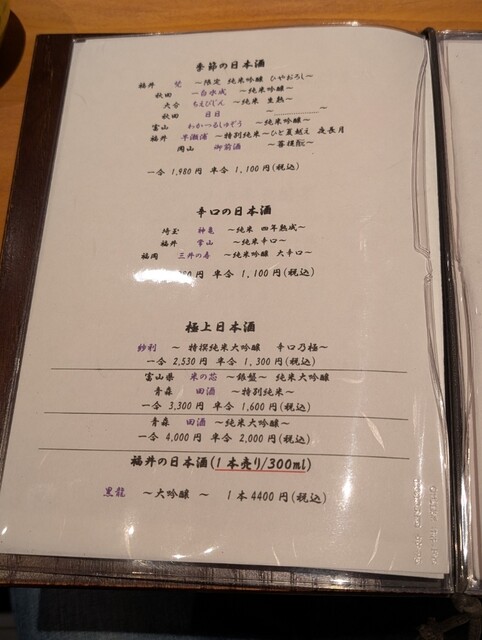 季節の日本酒
福井 梵 ～限定 純米吟醸 ひやおろし～
秋田 一白水成 ～純米吟醸～
大分 ちえびじん ～純米 生熟～
秋田
富山 わかつるしゅぞう ～純米吟醸～
福井 早瀬浦 ～特別純米～ひと夏越え 夜長月
岡山 御前酒 ～菩提酛～
一合 1,980円 半合 1,100円(税込)
辛口の日本酒
埼玉 神亀 ～純米 四年熟成～
福井 常山 ～純米辛口～
福岡 三井の寿 ～純米吟醸 大辛口～
80円 半合 1,100円(税込)
極上日本酒
紗利 ～ 特撰純米大吟醸 辛口乃極～
一合 2,530円 半合 1,300円(税込)
富山県 米の芯 ～銀盤～ 純米大吟醸
青森 田酒 ～特別純米～
一合 3,300円 半合 1,600円(税込)
青森 田酒 ～純米大吟醸～
一合 4,000円 半合 2,000円(税込)
福井の日本酒(1本売り/300ml)
黒龍 ～大吟醸 ～ 1本4400円(税込)